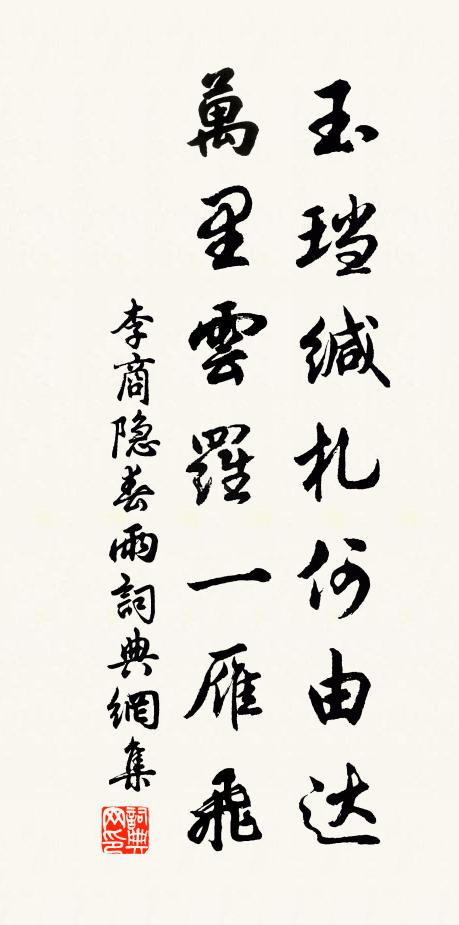 玉璫缄札何由达
萬里雲羅一雁飛
李商隐春雨詞典網集
詞典
网印